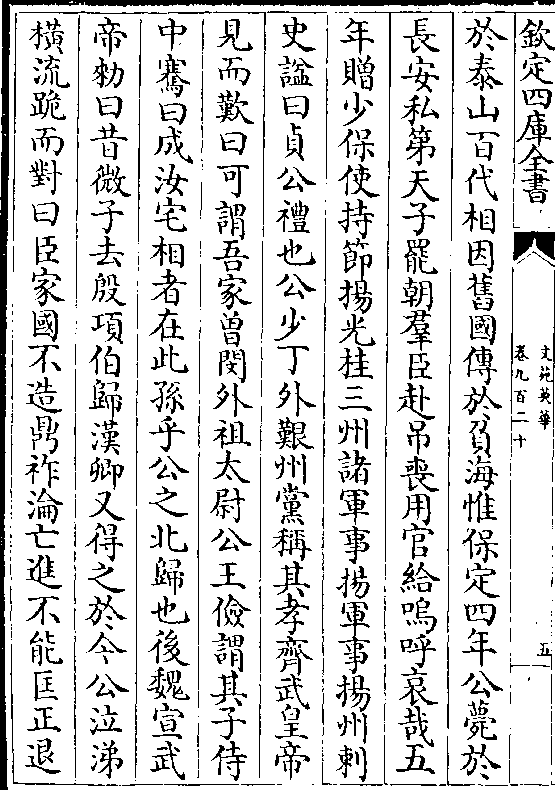 欽定四庫全書
文苑英華
卷九百二十
五
於泰山百代相因舊國傳於貧海惟保定四年公薨於
長安私第天子罷朝羣臣赴吊喪用官給嗚呼哀哉五
年贈少保使持節揚光桂三州諸軍事揚軍事揚州刺
史諡曰貞公禮也公少丁外艱州黨稱其孝齊武皇帝
見而歎曰可謂吾家曾閔外祖太尉公王儉謂其子侍
中騫曰成汝宅相者在此孫乎公之北歸也後魏宣武
帝勑曰昔微子去殷項伯歸漢卿又得之於今公泣涕
橫流跪而對曰臣家國不造鼎祚淪亡進不能匡正退